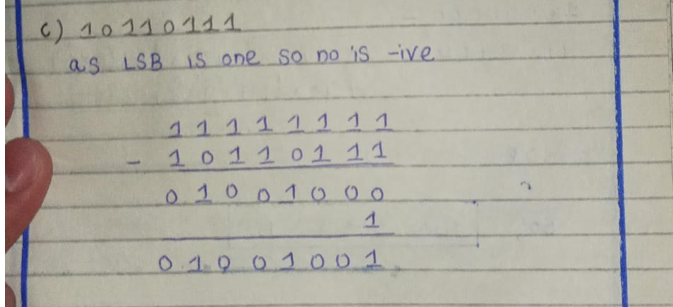 c) 10110111
as LSB is one so no is -ive
1 1 1 1 1 1 1 1
- 1 0 1 1 0 1 1 1
0 1 0 0 1 0 0 0
1
0 1 0 0 1 0 0 1